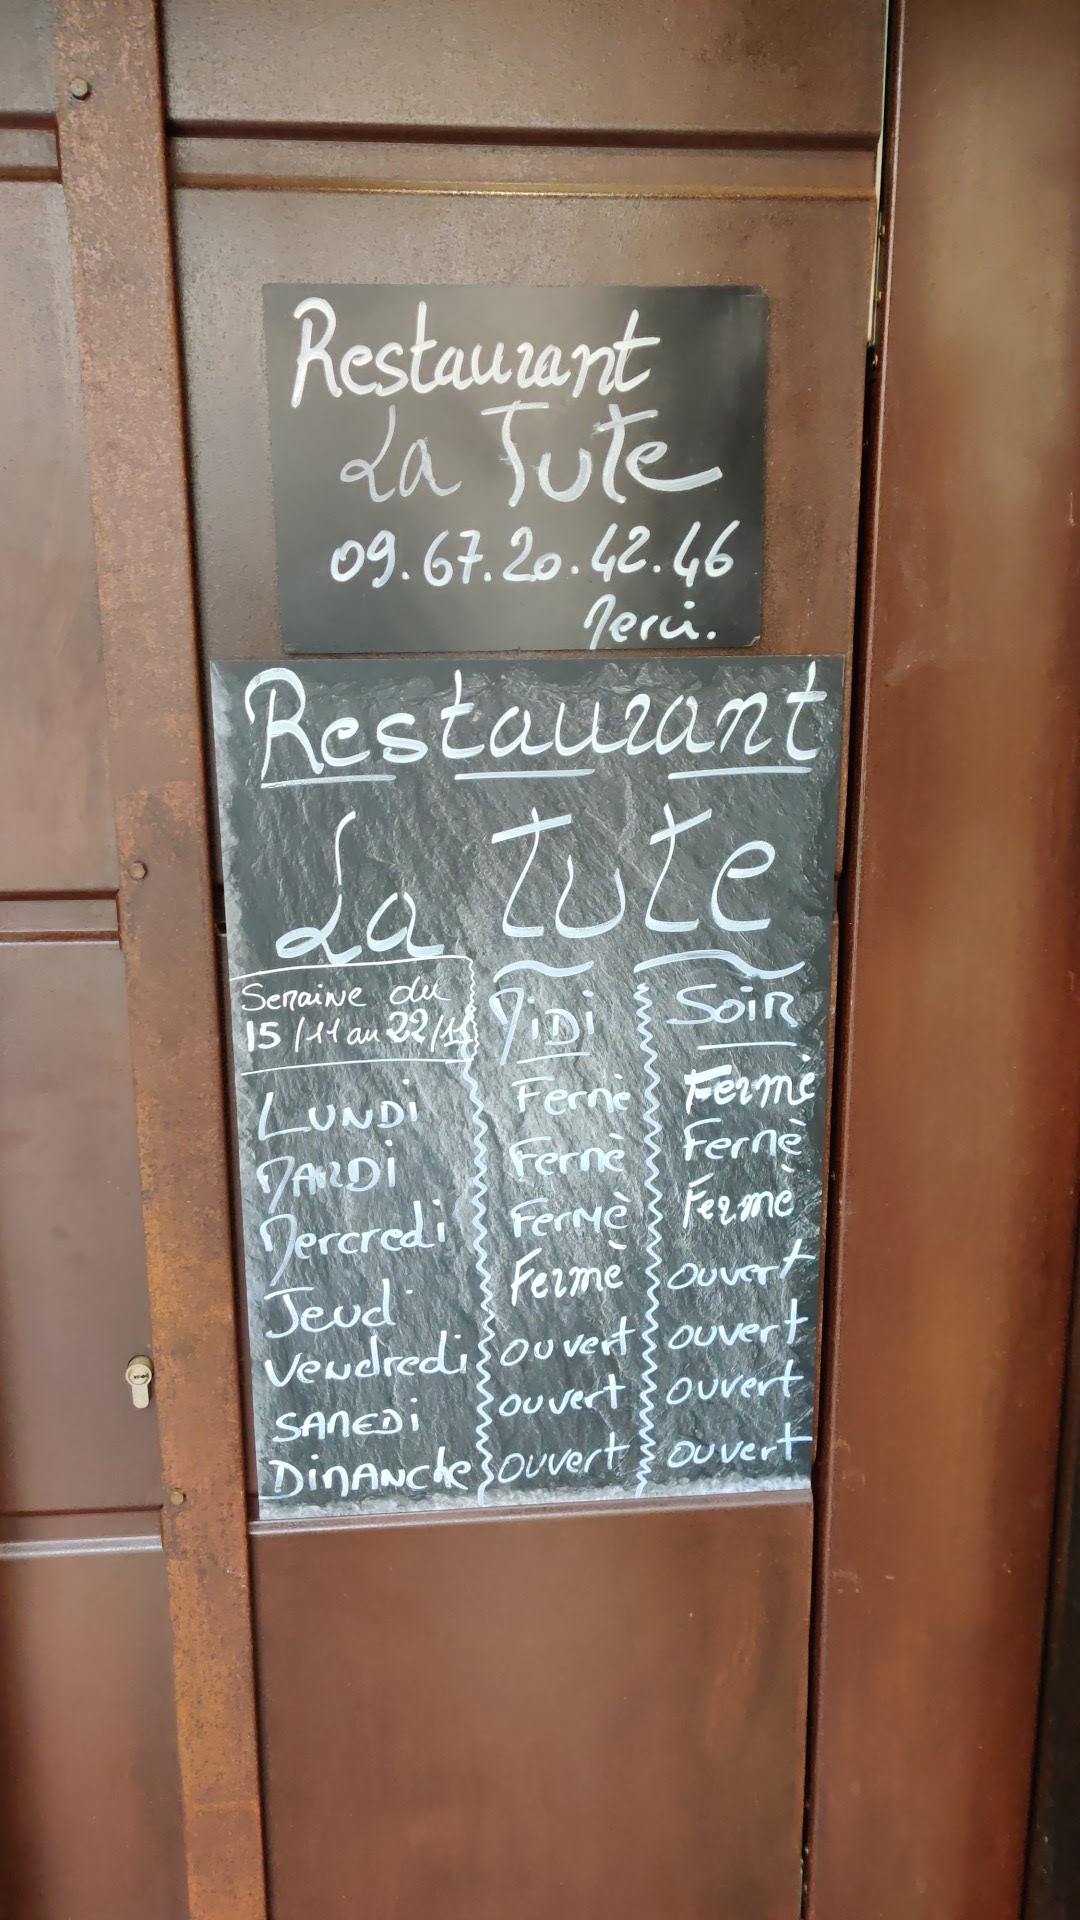 Restaurant
La Tute
09.67.20.42.46
Merci.
Restaurant
La Tute
Semaine du
15/11 au 22/11
MiDi SoiR
LUNDi Fermé Fermé
MARDi Fermè Fermè
Mercredi FerMè Fermè
Jeudi Fermè ouvert
Vendredi ouvert ouvert
SAMEDi ouvert ouvert
DiMANche ouvert ouvert